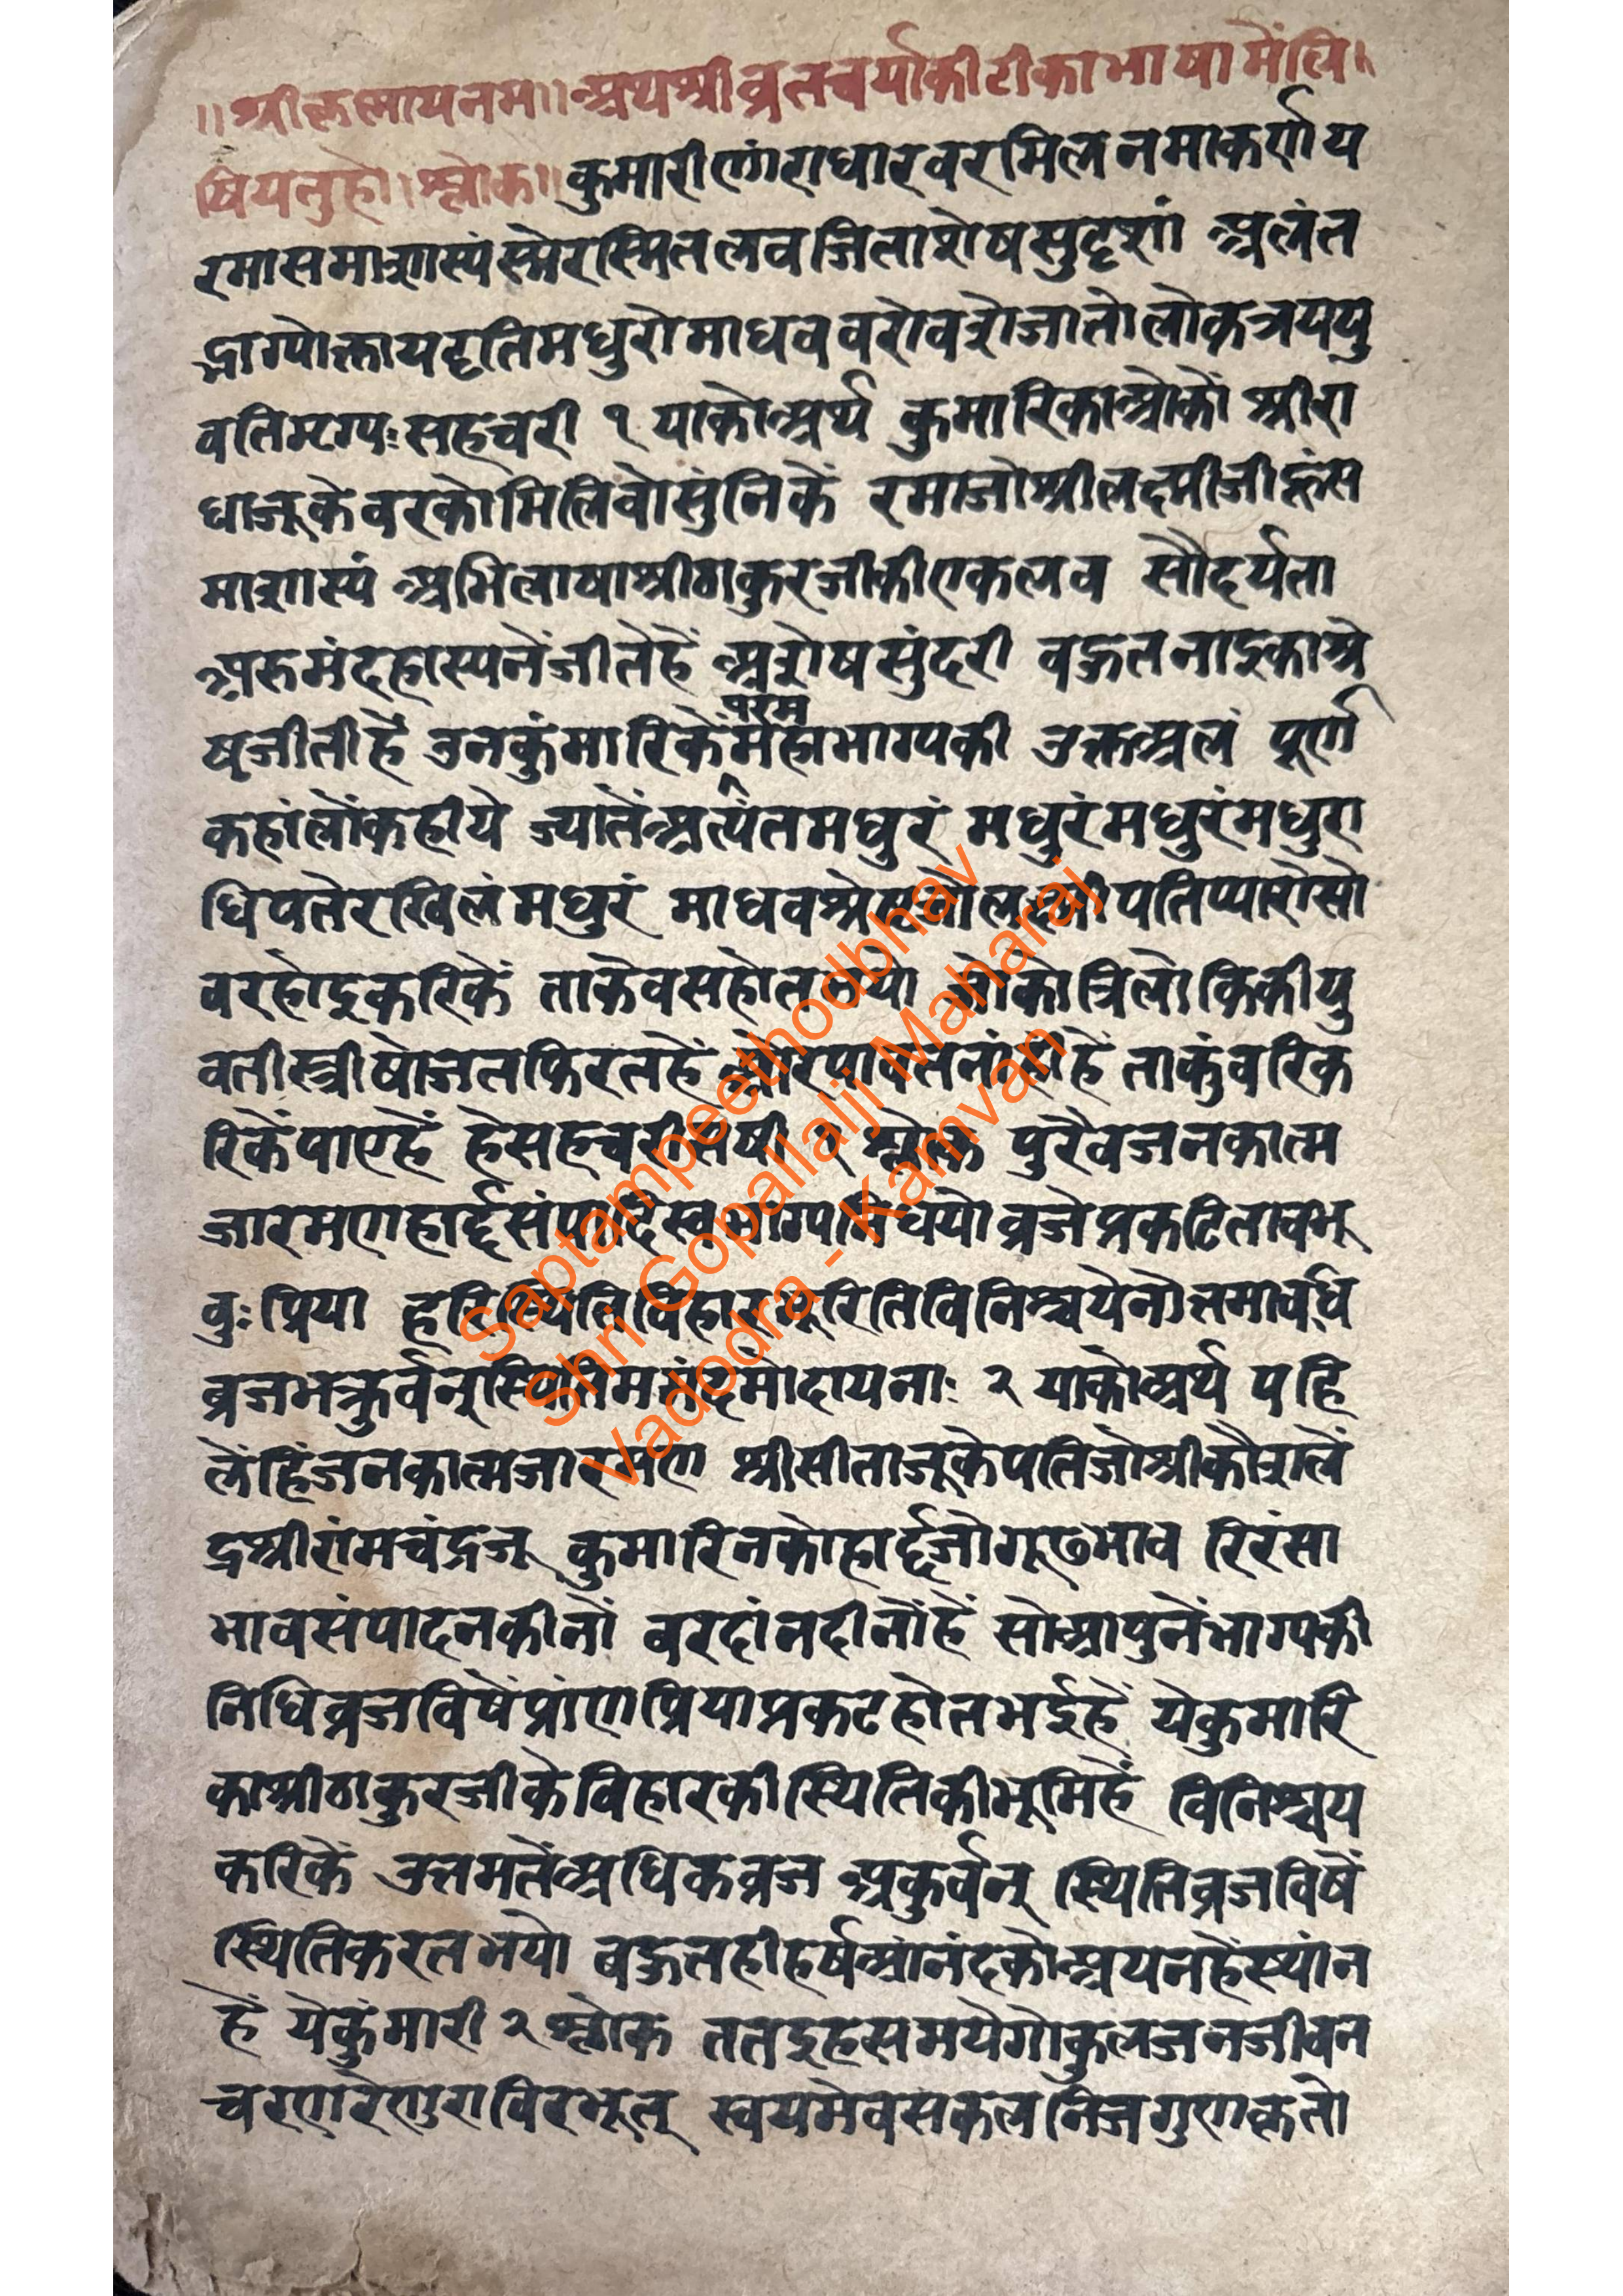 ॥श्रीकृष्णायनमः॥अथश्रीव्रतचर्याकीटीकाभाषामेंलि॥
षियतुहो।श्लोक॥कुमारीणांराधारवरमिलनमाकर्णय
रमासमाशास्यंस्मेरस्मितलवजिताशेषसुदृशां अलंत
द्भाग्योक्तायदतिमधुरोमाधववरोवशेजातोलोकत्रययु
वतिमृग्यःसहचरी १ याकोअर्थ कुमारिकाओकों श्रीरा
धाजूकेवरकोमिलिवोसुंनिकें रमाजोश्रीलक्ष्मीजीहूंस
माशास्यं अभिलाषाश्रीठाकुरजीकीएकलव सौदर्यता
अरुमंदहास्यनेंजीतेहें अशेषसुंदरी वहुतनाइकाअशे
षजीतीहें उनकुंमारिकेंमहाभाग्यकी उक्तअलं पूर्ण
परम
कहांलोंकहीये ज्यातेंअत्यंतमधुरं मधुरंमधुरंमधुरा
धिपतेरखिलंमधुरं माधवश्रेष्टजोलक्ष्मीपतिप्यारोसो
वरहोइकरिकें ताकेवसहोतभयो जोकोत्रिलोकिकीयु
वतीस्त्रीषोजतफिरतहें ओरपावतनांहीहें ताकुंवरिक
रिकेंपाएहें हेसहचरीसषी १ श्लोक पुरैवजनकात्म
जारमणहार्द्दसंपादिस्वभाग्यनिधयोव्रजेप्रकटितावभू
वुःप्रिया हरिस्थितिविहारभूरितिविनिश्चयेनोत्तमावधि
व्रजभकुर्वनूस्थितिममंदमोदायनाः २ याकोअर्थ पहि
लेंहिंजनकात्मजारमण श्रीसीताजूकेपतिजोश्रीकौशलें
द्रश्रीरांमचंद्रजू कुमारिनकोहार्द्दजोगूढभाव रिरंसा
भावसंपादनकीनों वरदांनदीनोंहें सोआपुनेंभाग्यकी
निधिव्रजविषेंप्रांणप्रियाप्रकटहोतभईहें येकुमारि
काश्रीठाकुरजीकेविहारकीस्थितिकीभूमिहें विनिश्चय
करिकें उत्तमतेंअधिकव्रज अकुर्वनू स्थितिव्रजविषें
स्थितिकरतभयो वहुतहीहर्षआंनंदकोअयनहेंस्यांन
हें येकुंमारी २ श्लोक ततइहसमयेगोकुलजनजीवन
चरणरेणुराविरभूतू स्वयमेवसकलनिजगुणकृतो
Saptampeethodbhav
Shri Gopallalji Maharaj
Vadodra - Kamvan